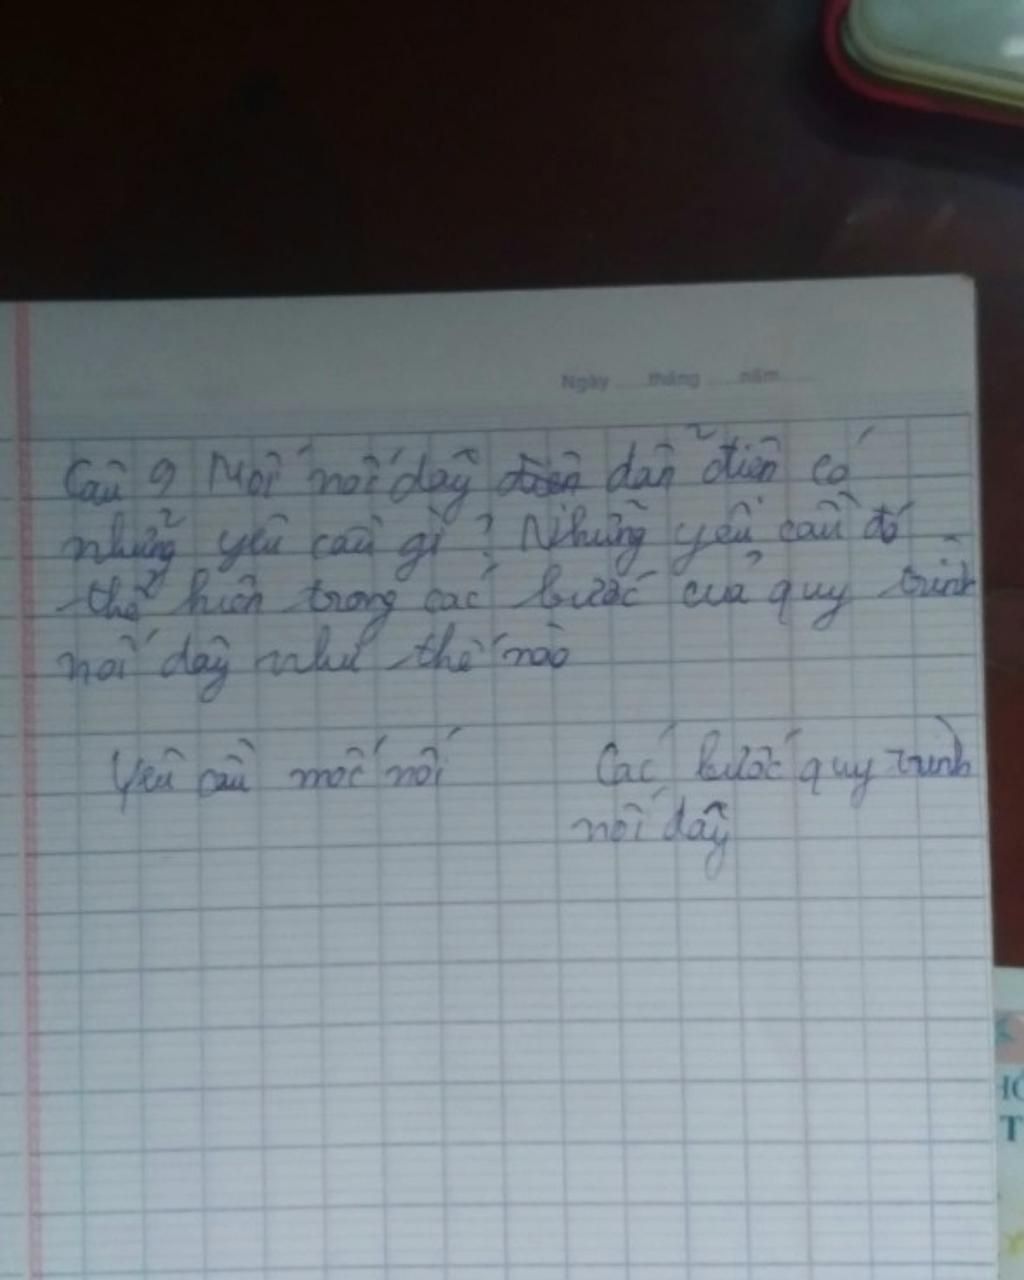 Ngày tháng năm
Câu 9 Mối nối dây dẫn điện có
những yêu cầu gì? Những yêu cầu đó
thể hiện trong các bước của quy trình
nối dây như thế nào
Yêu cầu mối nối
Các bước quy trình
nối dây